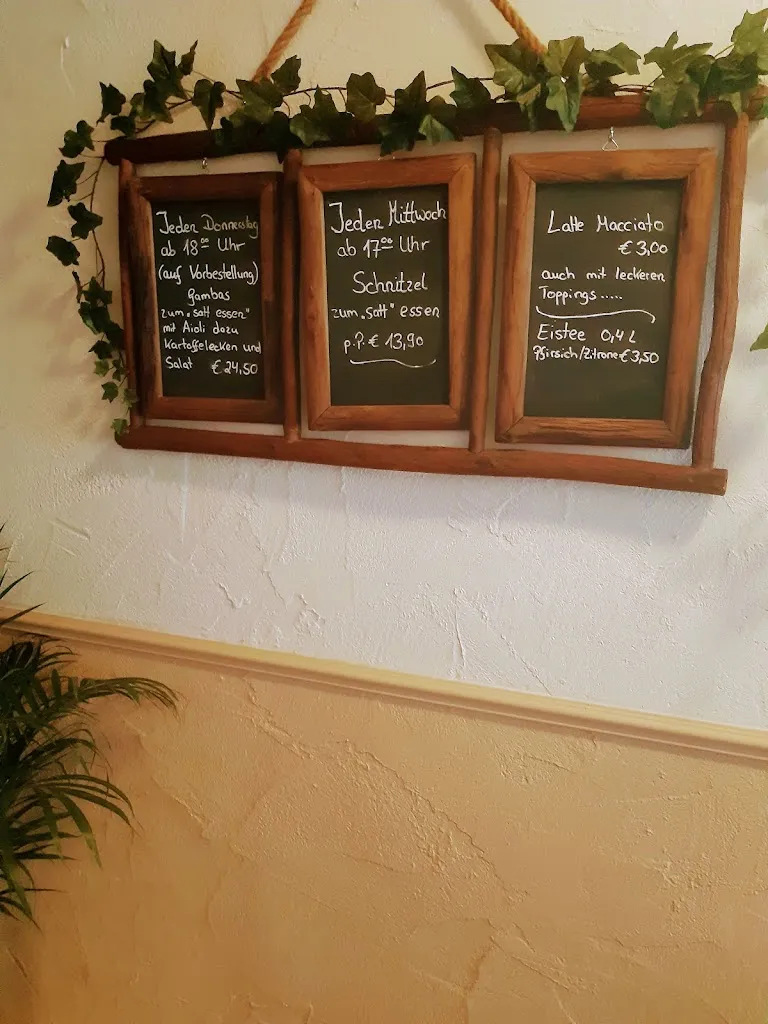 Jeden Donnerstag
ab 18⁰⁰ Uhr
(auf Vorbestellung)
Gambas
zum „satt essen"
mit Aioli dazu
Kartoffelecken und
Salat € 24,50
Jeden Mittwoch
ab 17⁰⁰ Uhr
Schnitzel
zum „satt" essen
p.P. € 13,90
Latte Macciato
€ 3,00
auch mit leckeren
Toppings.....
Eistee 0,4 L
Pfirsich/Zitrone € 3,50